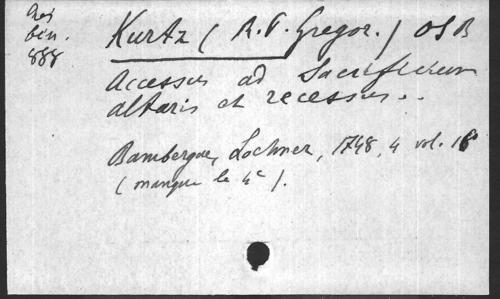 bin.
888
Kurtz (R. P. Gregor.) OSB
Accessus ad Sacrificium
altaris et recessus..
Bambergae, Lochner, 1748, 4 vol. 16°
(manque le 4e).